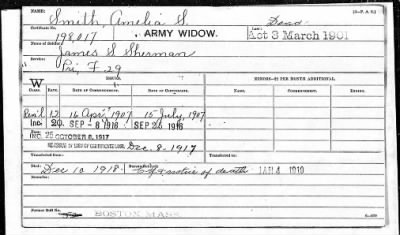 NAME: Smith, Amelia S. (3—P. A. G.)
Certificate No. 198,017 ARMY WIDOW. Dead.
Act 3 March 1901
Name of Soldier: James S Sherman
Service: Pri, F. 29
W MINORS—$2 PER MONTH ADDITIONAL.
CLASS. RATE. DATE OF COMMENCEMENT. DATE OF CERTIFICATE. NAMES. COMMENCEMENT. ENDING.
12 16 Apr, 1907 15 July, 1907
INC. 20. SEP - 8 1916 SEP 26 1916
INC. 25 OCTOBER 6, 1917
RE-ISSUE IN LIEU OF CERTIFICATE LOST. Dec. 8. 1917
Transferred from
Transferred to
Died: Dec 10 1918 notice of death 1919
Former Roll No. BOSTON MASS.